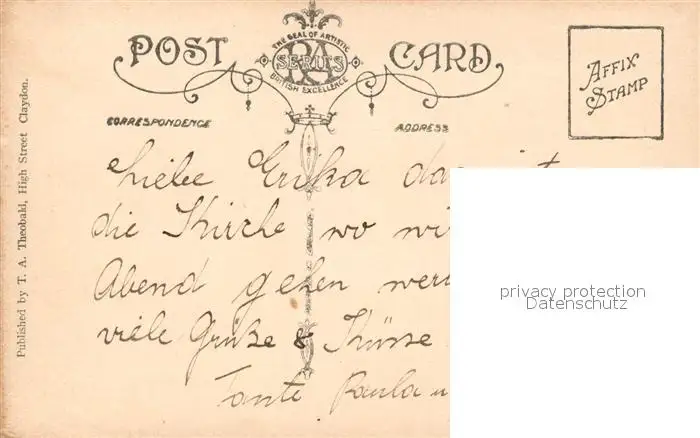 POST CARD
THE SEAL OF ARTISTIC
RA
SERIES
BRITISH EXCELLENCE
AFFIX
STAMP
CORRESPONDENCE
ADDRESS
Liebe Erika
die Kirche wo
Abend gehen
viele Grüße & Küsse
Tante Paula
Published by T. A. Theobald, High Street Claydon.
privacy protection
Datenschutz